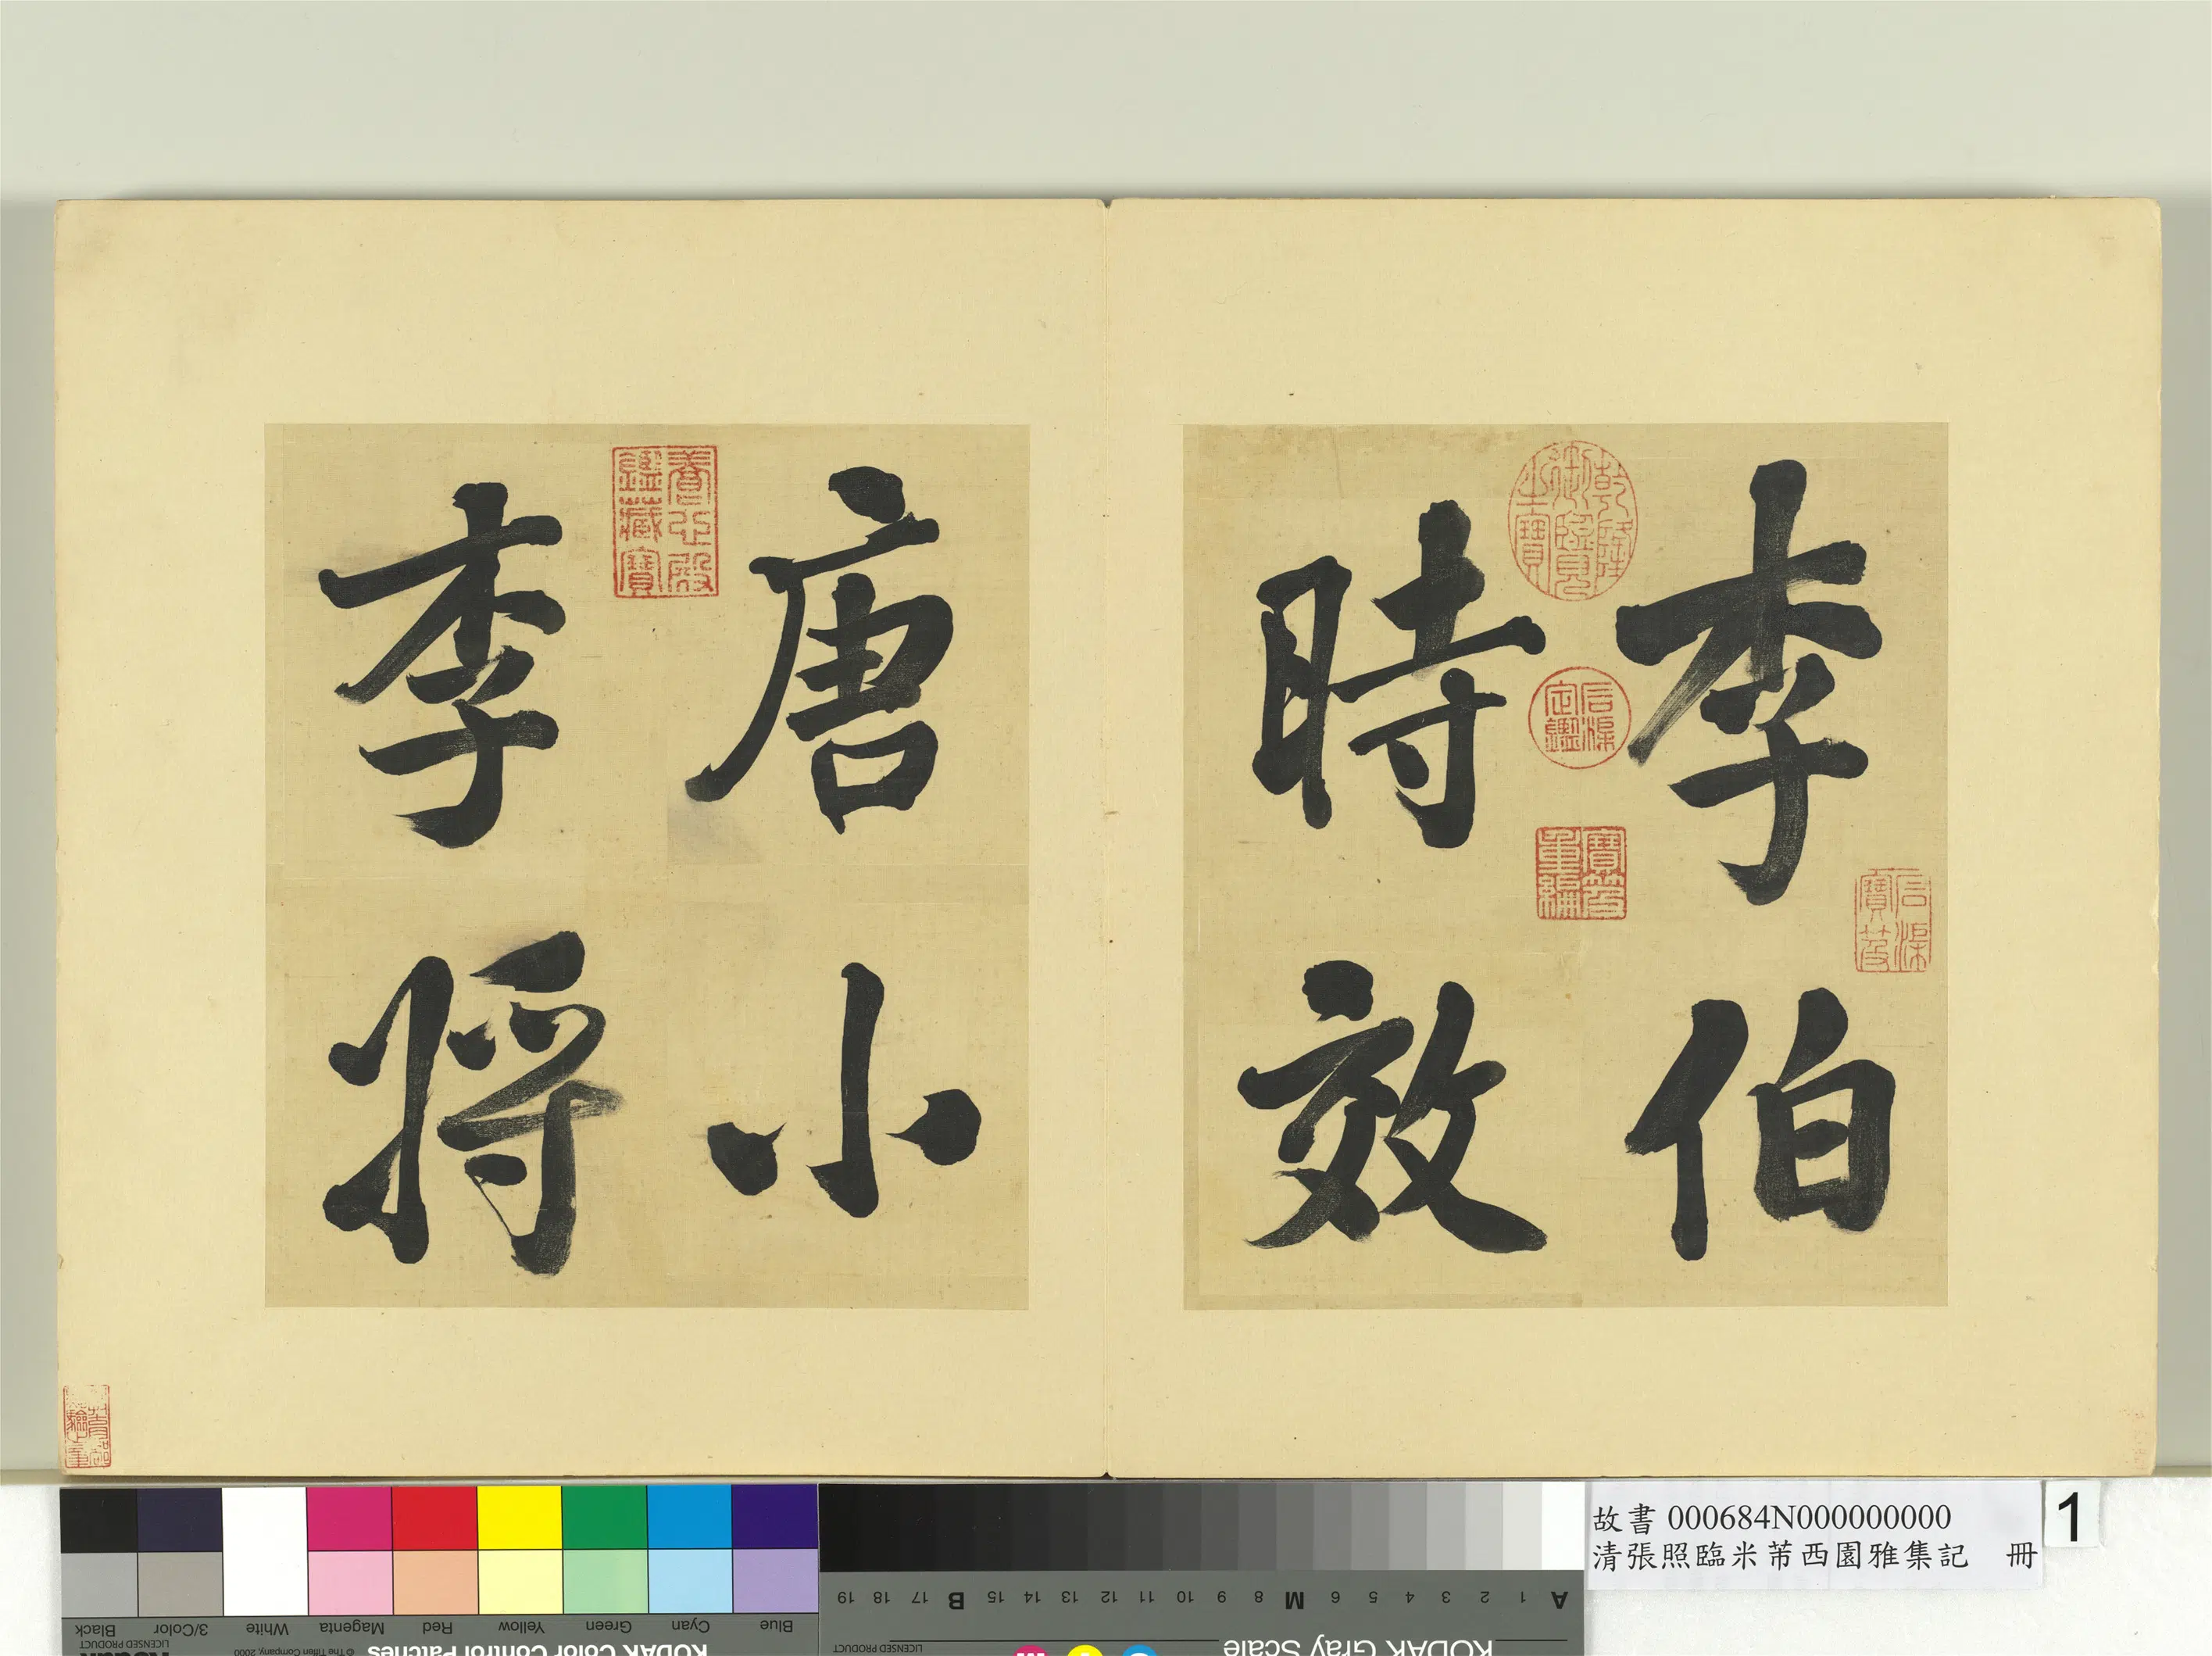 李伯
時效
唐小
李將
乾隆御覽之寶
石渠定鑑
寶笈重編
石渠寶笈
養心殿鑑藏寶
故書 000684N000000000
清張照臨米芾西園雅集記 冊
1
Blue
Cyan
Green
Yellow
Red
Magenta
White
3/Color
Black
LICENSED PRODUCT
© The Tiffen Company, 2000
KODAK Color Control Patches
A 1 2 3 4 5 6 M 8 9 10 11 12 13 14 15 B 17 18 19
KODAK Gray Scale
LICENSED PRODUCT